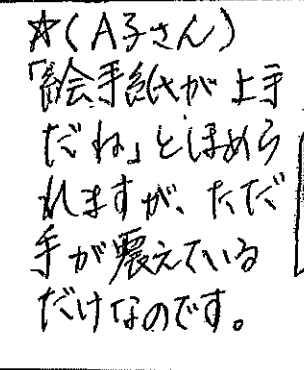 ☆(A子さん)
「絵手紙が上手
だね」とほめら
れますが、ただ
手が震えている
だけなのです。